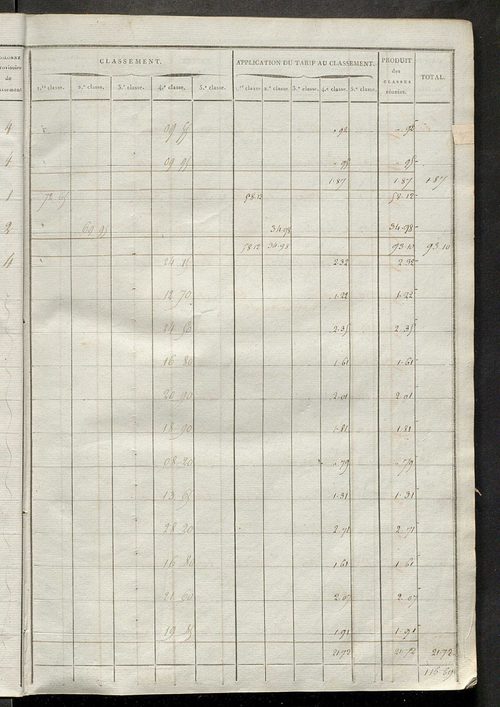 CLASSEMENT. APPLICATION DU TARIF AU CLASSEMENT. PRODUIT des CLASSES réunies. TOTAL.
1.re classe. 2.e classe. 3.e classe. 4.e classe. 5.e classe. 1.re classe 2.e classe. 3.e classe. 4.e classe. 5.e classe.
4 ,92 ,92
4 ,95
1.87 1.87 1.87
1 58.12 58.12
2 69 95 34.98 34.98
58.12 34.98 93.10 93.10
4 2.32 2.32
12 70 1.22 1.22
2.35 2.35
16 80 1.61 1.61
20 90 2.01 2.01
18 90 1.81 1.81
08 20 ,79 ,79
1.31 1.31
28 20 2.71 2.71
16 80 1.61 1.61
2.07 2.07
1.91 1.91
21.72 21.72 21.72
116.69